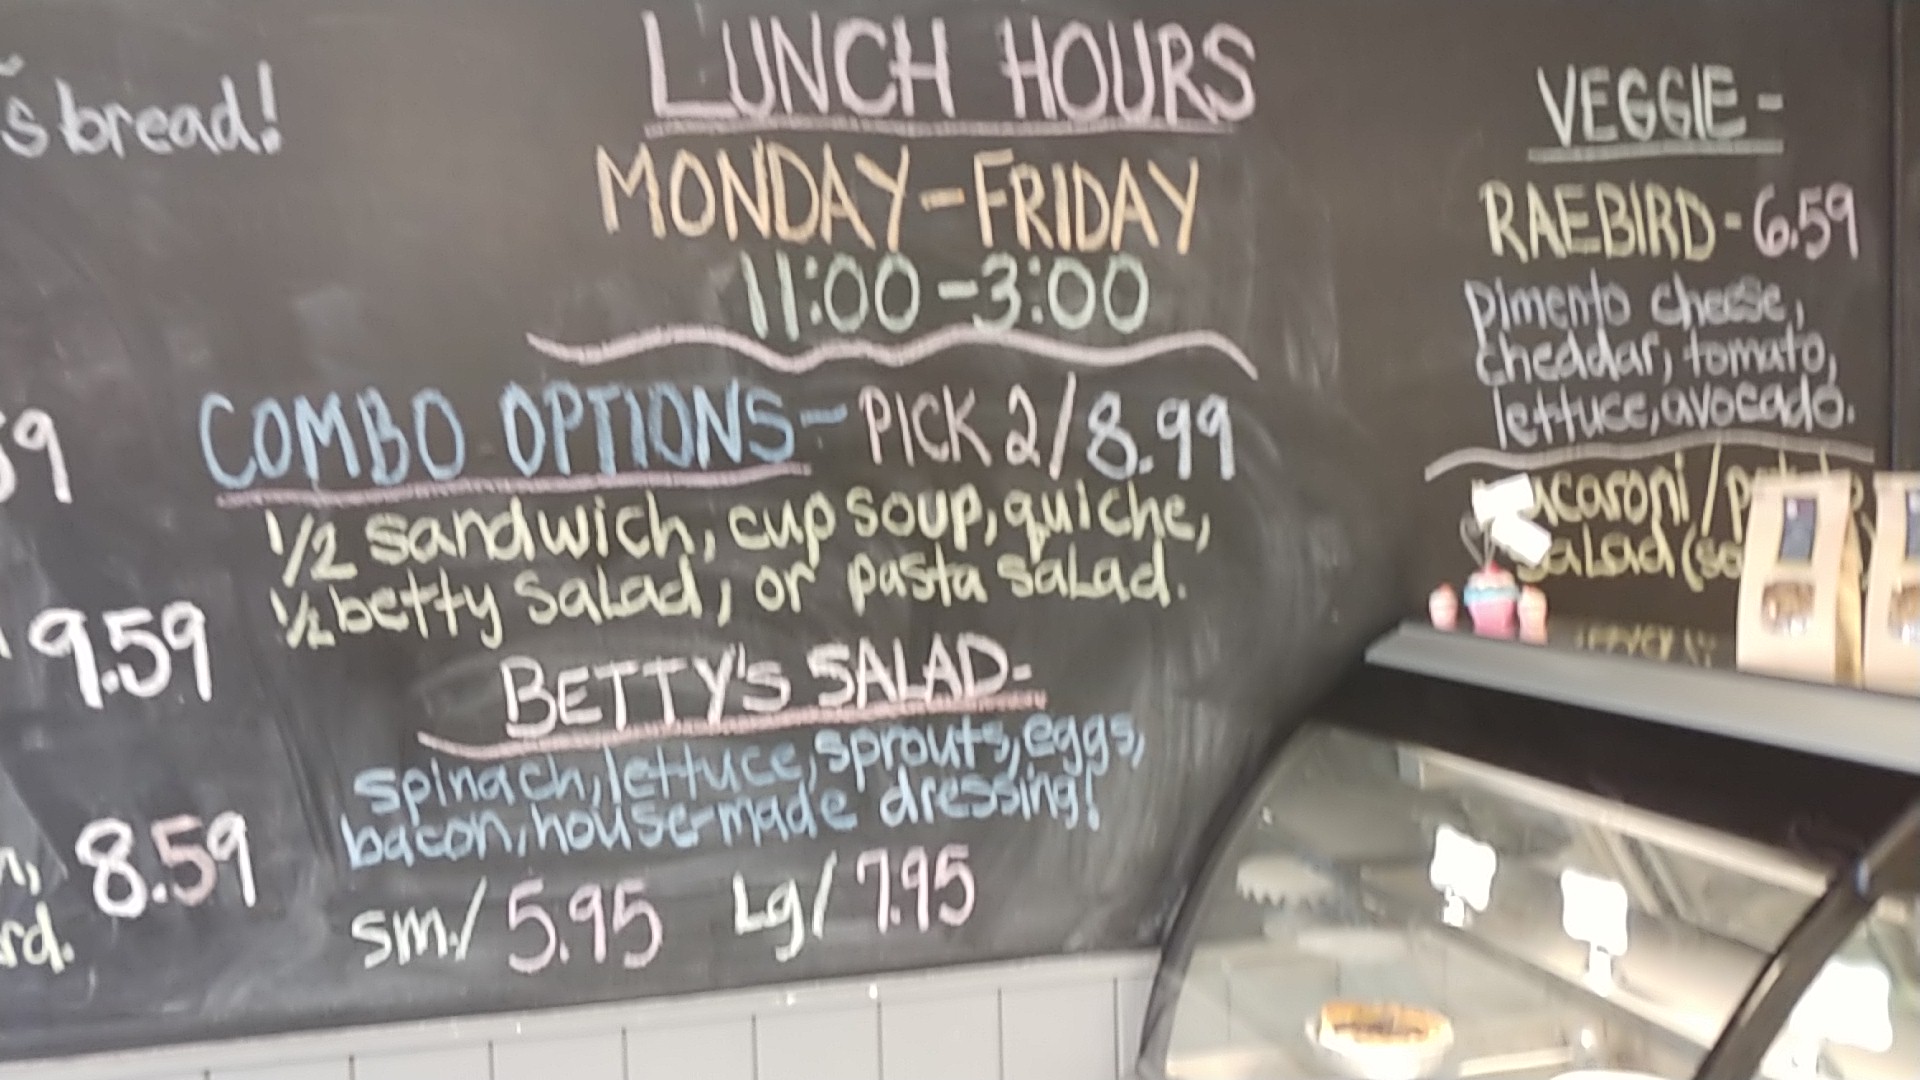 s bread!
59
9.59
8.59
rd.
LUNCH HOURS
MONDAY-FRIDAY
11:00-3:00
COMBO OPTIONS- PICK 2/8.99
1/2 sandwich, cup soup, quiche,
1/2 betty salad, or pasta salad.
BETTY'S SALAD-
spinach, lettuce, sprouts, eggs,
bacon, house-made dressing!
sm./5.95 Lg/7.95
VEGGIE-
RAEBIRD-6.59
pimento cheese,
cheddar, tomato,
lettuce, avocado.
acaroni/
salad